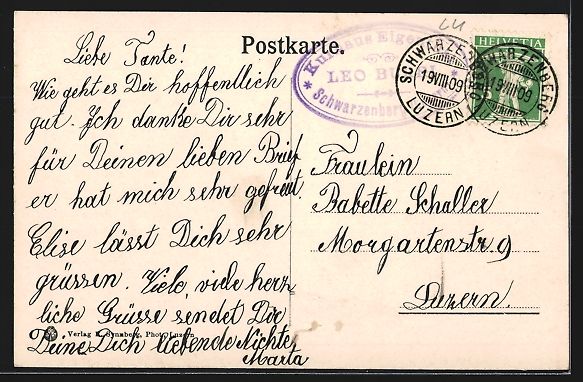 Postkarte.
Liebe Tante!
Wie geht es Dir hoffentlich
gut. Ich danke Dir sehr
für Deinen lieben Brief
er hat mich sehr gefreut.
Elise lässt Dich sehr
grüssen. Viele, viele herz
liche Grüsse sendet Dir
Deine Dich liebende Nichte
Marta
Verlag E. Synnberg, Phot. Luzern
Kurhaus Eigenthal
LEO BU
Schwarzenberg
HELVETIA
SCHWARZENBERG
19.VIII.09
LUZERN
SCHWARZENBERG
19.VIII.09
LUZERN
Fräulein
Babette Schaller
Morgartenstr 9
Luzern.